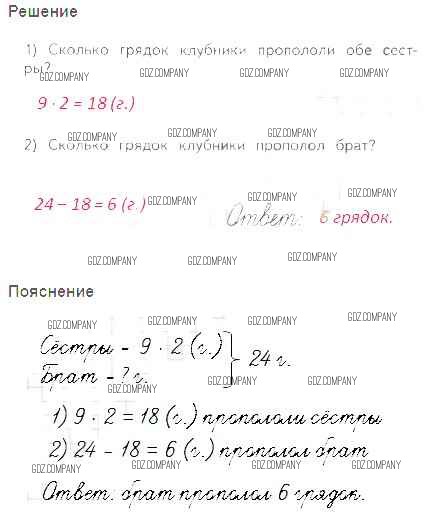 Решение
1) Сколько грядок клубники пропололи обе сест-
ры?
GDZ.COMPANY GDZ.COMPANY GDZ.COMPANY GDZ.COMPANY
9 · 2 = 18 (г.)
GDZ.COMPANY GDZ.COMPANY GDZ.COMPANY
2) Сколько грядок клубники прополол брат?
GDZ.COMPANY GDZ.COMPANY GDZ.COMPANY
24 – 18 = 6 (г.)
Ответ: 6 грядок.
GDZ.COMPANY GDZ.COMPANY GDZ.COMPANY
Пояснение
GDZ.COMPANY GDZ.COMPANY GDZ.COMPANY GDZ.COMPANY
Сёстры – 9 · 2 (г.)
Брат – ? г.
24 г.
GDZ.COMPANY GDZ.COMPANY GDZ.COMPANY
1) 9 · 2 = 18 (г.) пропололи сёстры
2) 24 – 18 = 6 (г.) прополол брат
GDZ.COMPANY GDZ.COMPANY GDZ.COMPANY GDZ.COMPANY
Ответ: брат прополол 6 грядок.